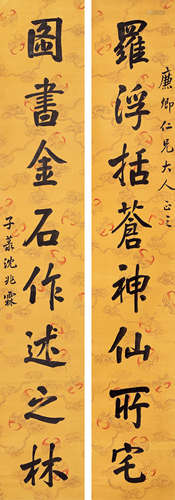 廉卿仁兄大人正之
羅浮括蒼神仙所宅
圖書金石作述之林
子菉沈兆霖